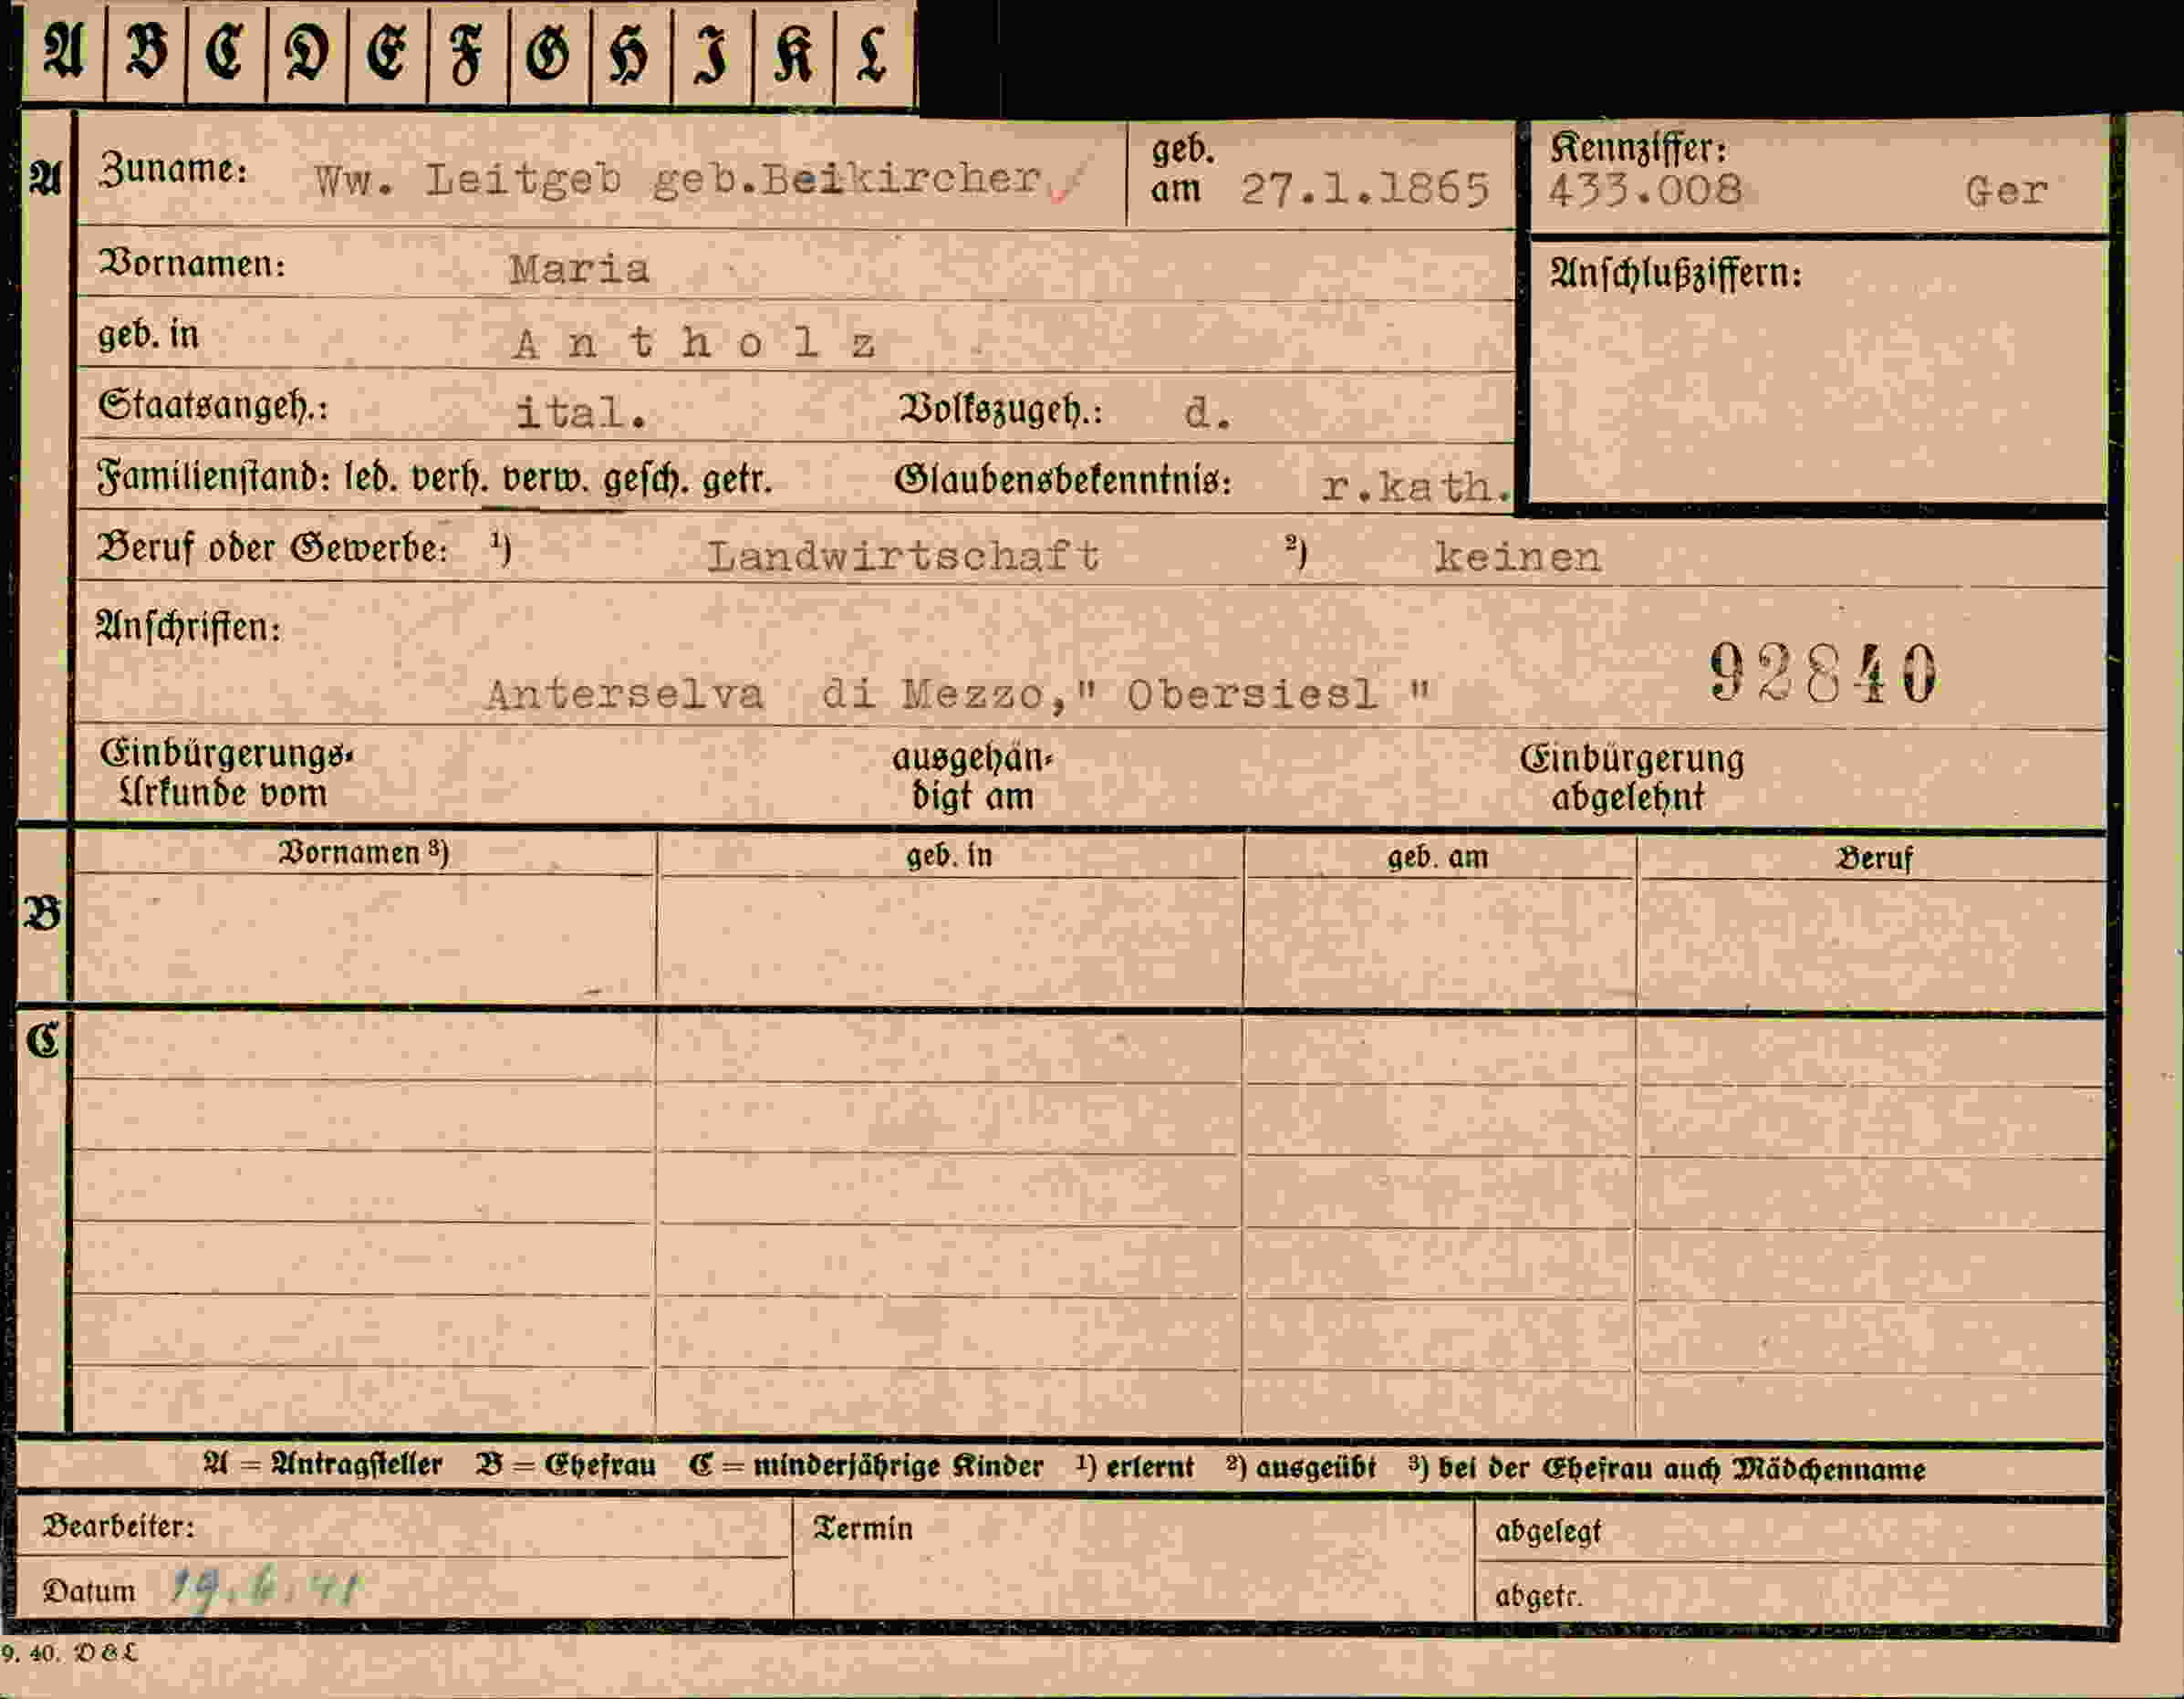 A B C D E F G H I K L
A Zuname: Ww. Leitgeb geb.Beikircher geb. am 27.1.1865 Kennziffer: 433.008 Ger
Vornamen: Maria Anschlußziffern:
geb. in A n t h o l z
Staatsangeh.: ital. Volkszugeh.: d.
Familienstand: led. verh. verw. gesch. getr. Glaubensbekenntnis: r.kath.
Beruf oder Gewerbe: ¹) Landwirtschaft ²) keinen
Anschriften:
Anterselva di Mezzo," Obersiesl " 92840
Einbürgerungs- ausgehän- Einbürgerung
Urkunde vom digt am abgelehnt
Vornamen ³) geb. in geb. am Beruf
B
C
A = Antragsteller B = Ehefrau C = minderjährige Kinder ¹) erlernt ²) ausgeübt ³) bei der Ehefrau auch Mädchenname
Bearbeiter: Termin abgelegt
Datum 19.6.41 abgetr.
9. 40. D & L